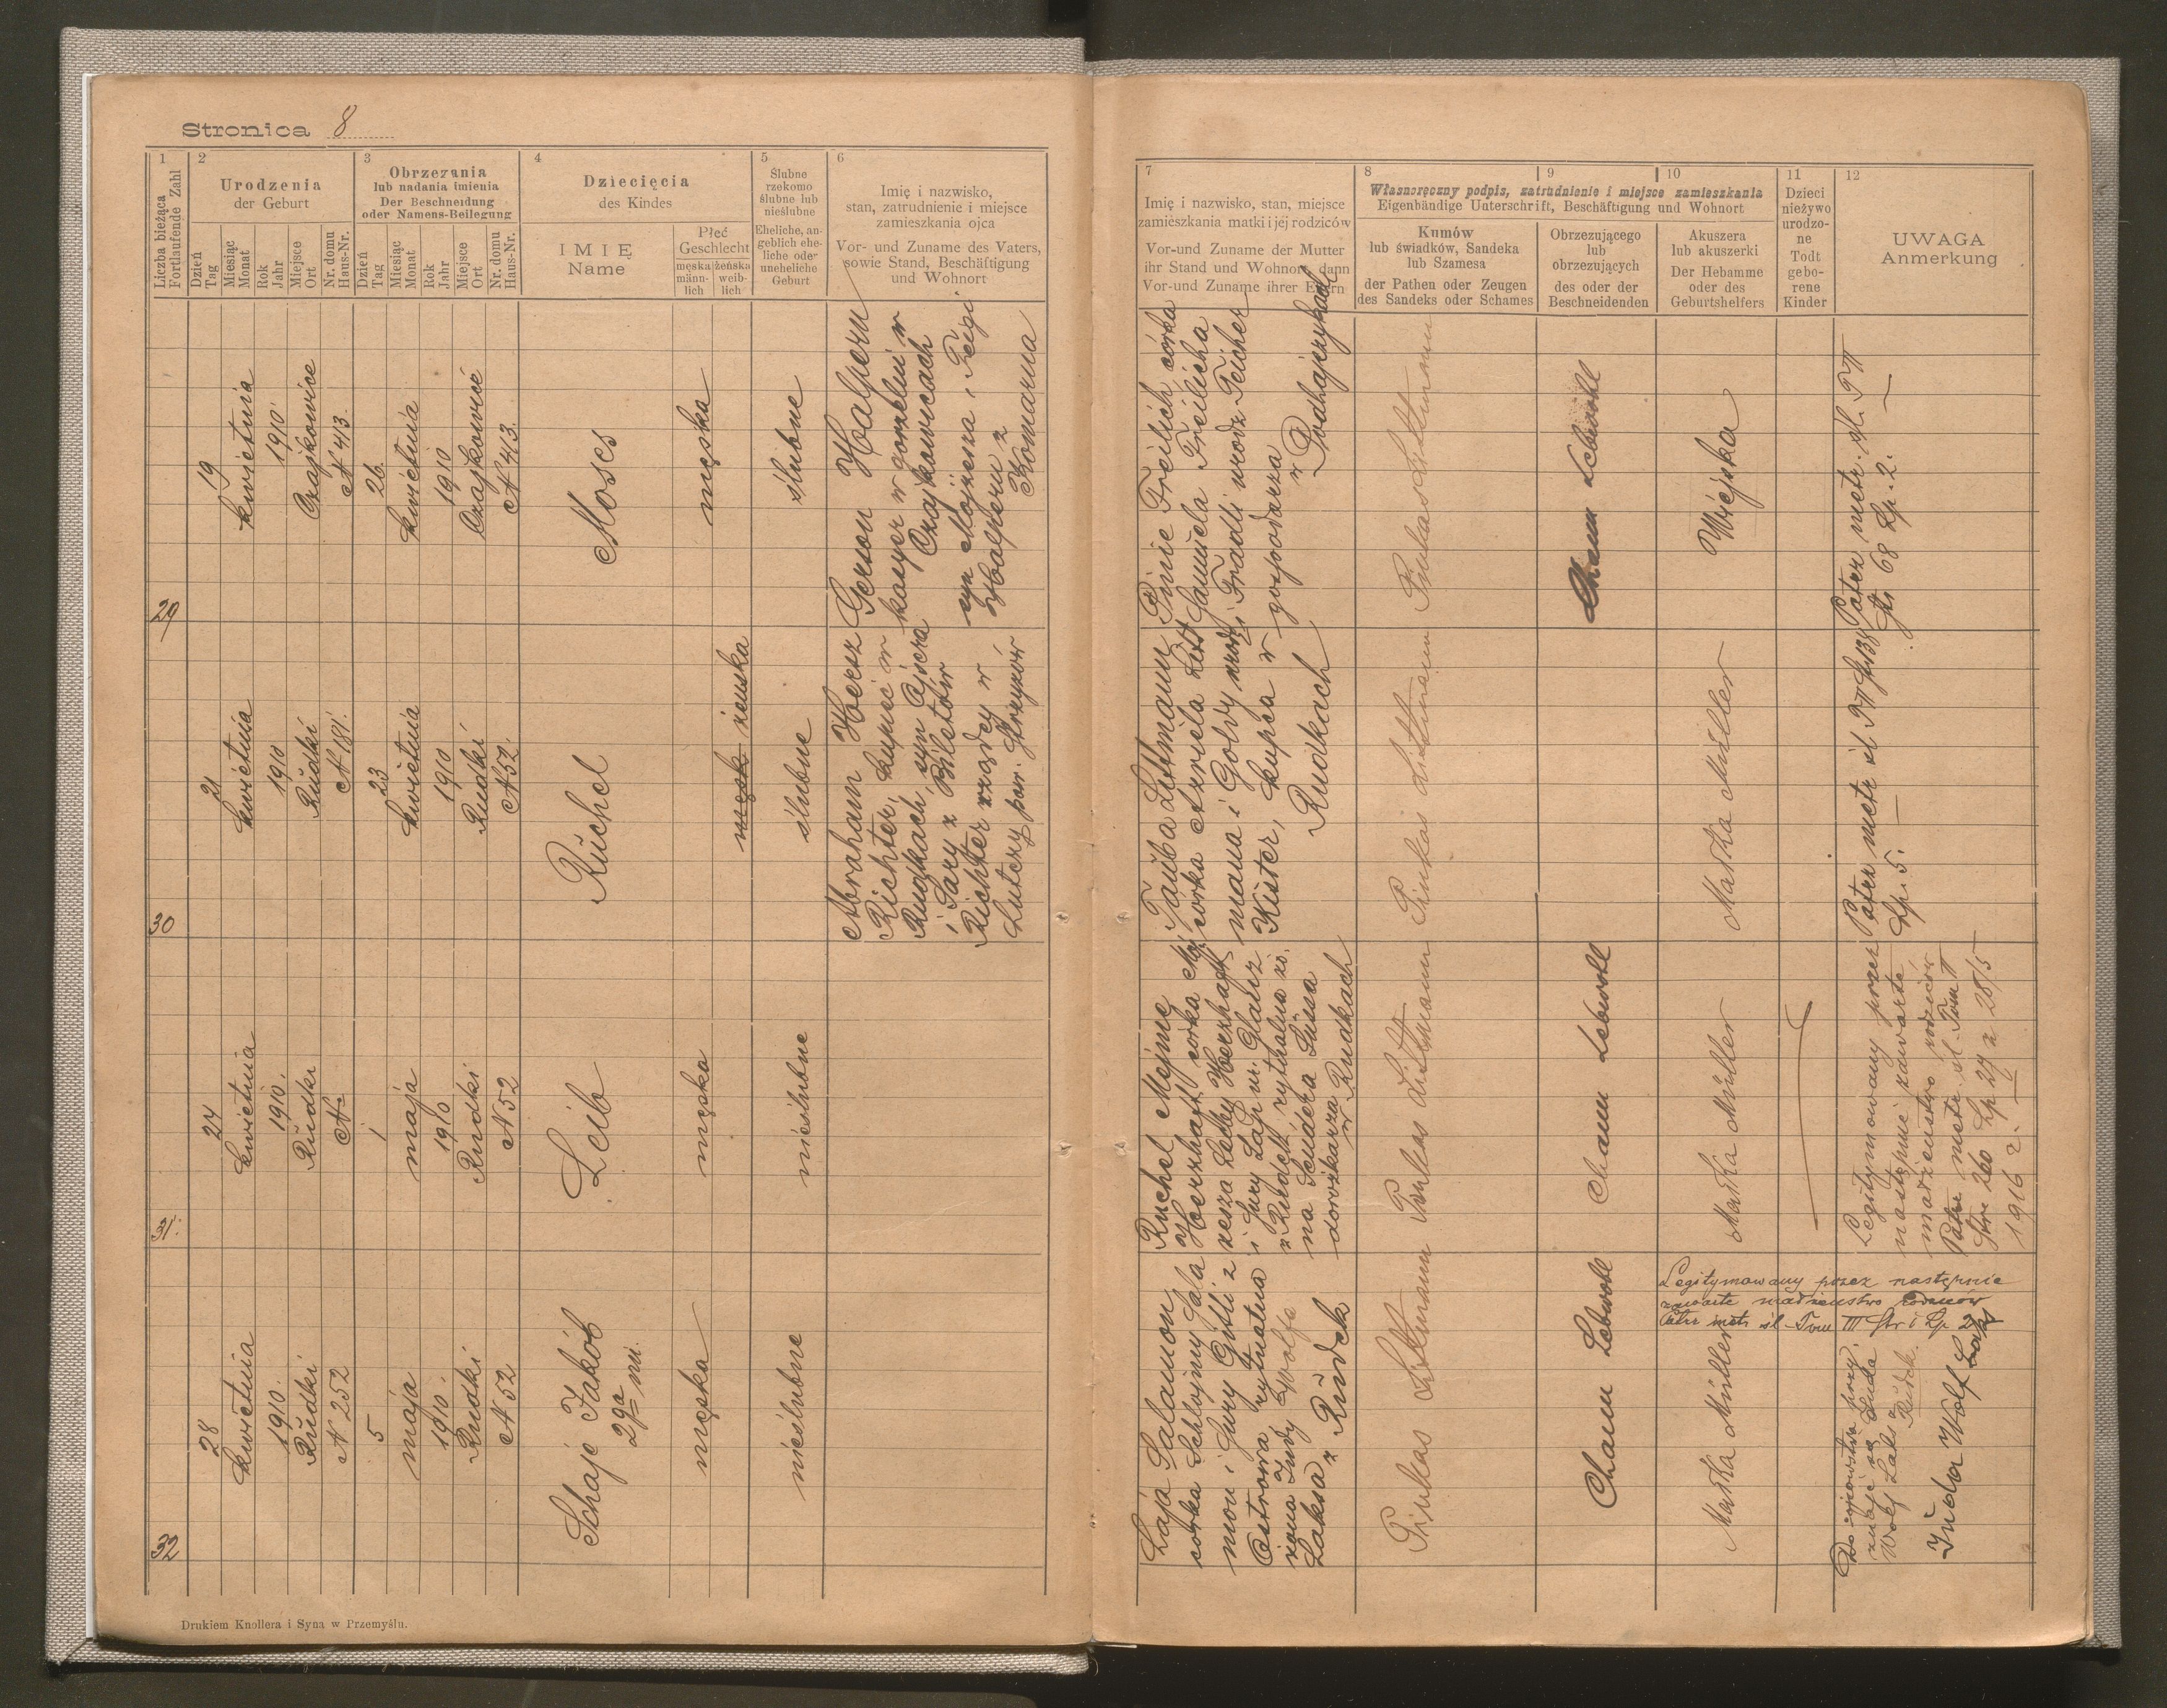 Stronica 8
1
Liczba bieżąca
Fortlaufende Zahl
2
Urodzenia
der Geburt
Dzień
Tag
Miesiąc
Monat
Rok
Jahr
Miejsce
Ort
Nr. domu
Haus-Nr.
3
Obrzezania
lub nadania imienia
Der Beschneidung
oder Namens-Beilegung
Dzień
Tag
Miesiąc
Monat
Rok
Jahr
Miejsce
Ort
Nr. domu
Haus-Nr.
4
Dziecięcia
des Kindes
IMIĘ
Name
Płeć
Geschlecht
męska
männ-
lich
żeńska
weib-
lich
5
Ślubne
rzekomo
ślubne lub
nieślubne
Eheliche, an-
geblich ehe-
liche oder
uneheliche
Geburt
6
Imię i nazwisko,
stan, zatrudnienie i miejsce
zamieszkania ojca
Vor- und Zuname des Vaters,
sowie Stand, Beschäftigung
und Wohnort
7
Imię i nazwisko, stan, miejsce
zamieszkania matki i jej rodziców
Vor-und Zuname der Mutter
ihr Stand und Wohnort, dann
Vor-und Zuname ihrer Eltern
8
9
10
Własnoręczny podpis, zatrudnienie i miejsce zamieszkania
Eigenhändige Unterschrift, Beschäftigung und Wohnort
Kumów
lub świadków, Sandeka
lub Szamesa
der Pathen oder Zeugen
des Sandeks oder Schames
Obrzezującego
lub
obrzezujących
des oder der
Beschneidenden
Akuszera
lub akuszerki
Der Hebamme
oder des
Geburtshelfers
11
Dzieci
nieżywo
urodzo-
ne
Todt
gebo-
rene
Kinder
12
UWAGA
Anmerkung
29
19
kwietnia
1910
Czajkowice
N 413.
26.
kwietnia
1910
Czajkowice
N 413.
Moses
męska
ślubne
Gerson Halpern
kasyer w gorzelni w
Czajkowicach
syn Mojżesza i Feigi
Halpern z
Komarna
Pinie Freilich córka
Samuela Freilicha
i Fradli urodz Teicher
gospodarza
w
Podhajczykach
Pinkas Littmann
Chaim Lebwohl
Wiejska
Pater metr. śl. T II
Str 68 Lp. 2.
30
21
kwietnia
1910
Rudki
N 181.
23
kwietnia
1910
Rudki
N 52.
Ruchel
męsk żeńska
ślubne
Abraham Hersz
Richter, kupiec w
Rudkach, syn Ajzera
i Sary z Biletów
Richter rządcy w
Tauba Littmann
córka Azriela Litt
mana i Goldy urodz
Kister, kupca w
Rudkach
Pinkas Littmann
Matka Müller
Pater metr śl T II Str 138
Lp. 5.
31.
24
kwietnia
1910.
Rudki
N -
1
maja
1910
Rudki
N 52
Leib
męska
nieślubne
Ruchel Mejme
Herzhaft córka Moj
żesza Leiby Herzhaft
z Rudek rytualna żo.
na Sendera Süssa
dorożkarza
w Rudkach
Pinkas Littmann
Chaim Lebwohl
Matka Müller
Legitymowany przez
następnie zawarte
małżeństwo rodziców
Patrz metr. śl. Tom II
Str. 260 Lp 29 z 28/5
1916 r.
32
28
kwietnia
1910.
Rudki
N 252
5
maja
1910.
Rudki
N 52
Schaje Jakób
2ga im.
męska
nieślubne
Łaja Salamon,
córka Schlojmy Sala
mon i Sury Gitli z
Ostrowa rytualna
żona Judy Wolfa
Laksa z Rudek
Pinkas Littmann
Chaim Lebwohl
Matka Müller
Legitymowany przez następnie
zawarte małżeństwo rodziców
Patrz metr śl - Tom III Str 1 Lp 2
Do ojcowstwa przy
znaje się Juda
Wolf Laks z
Rudek.
Juda Wolf Laks
Drukiem Knollera i Syna w Przemyślu.